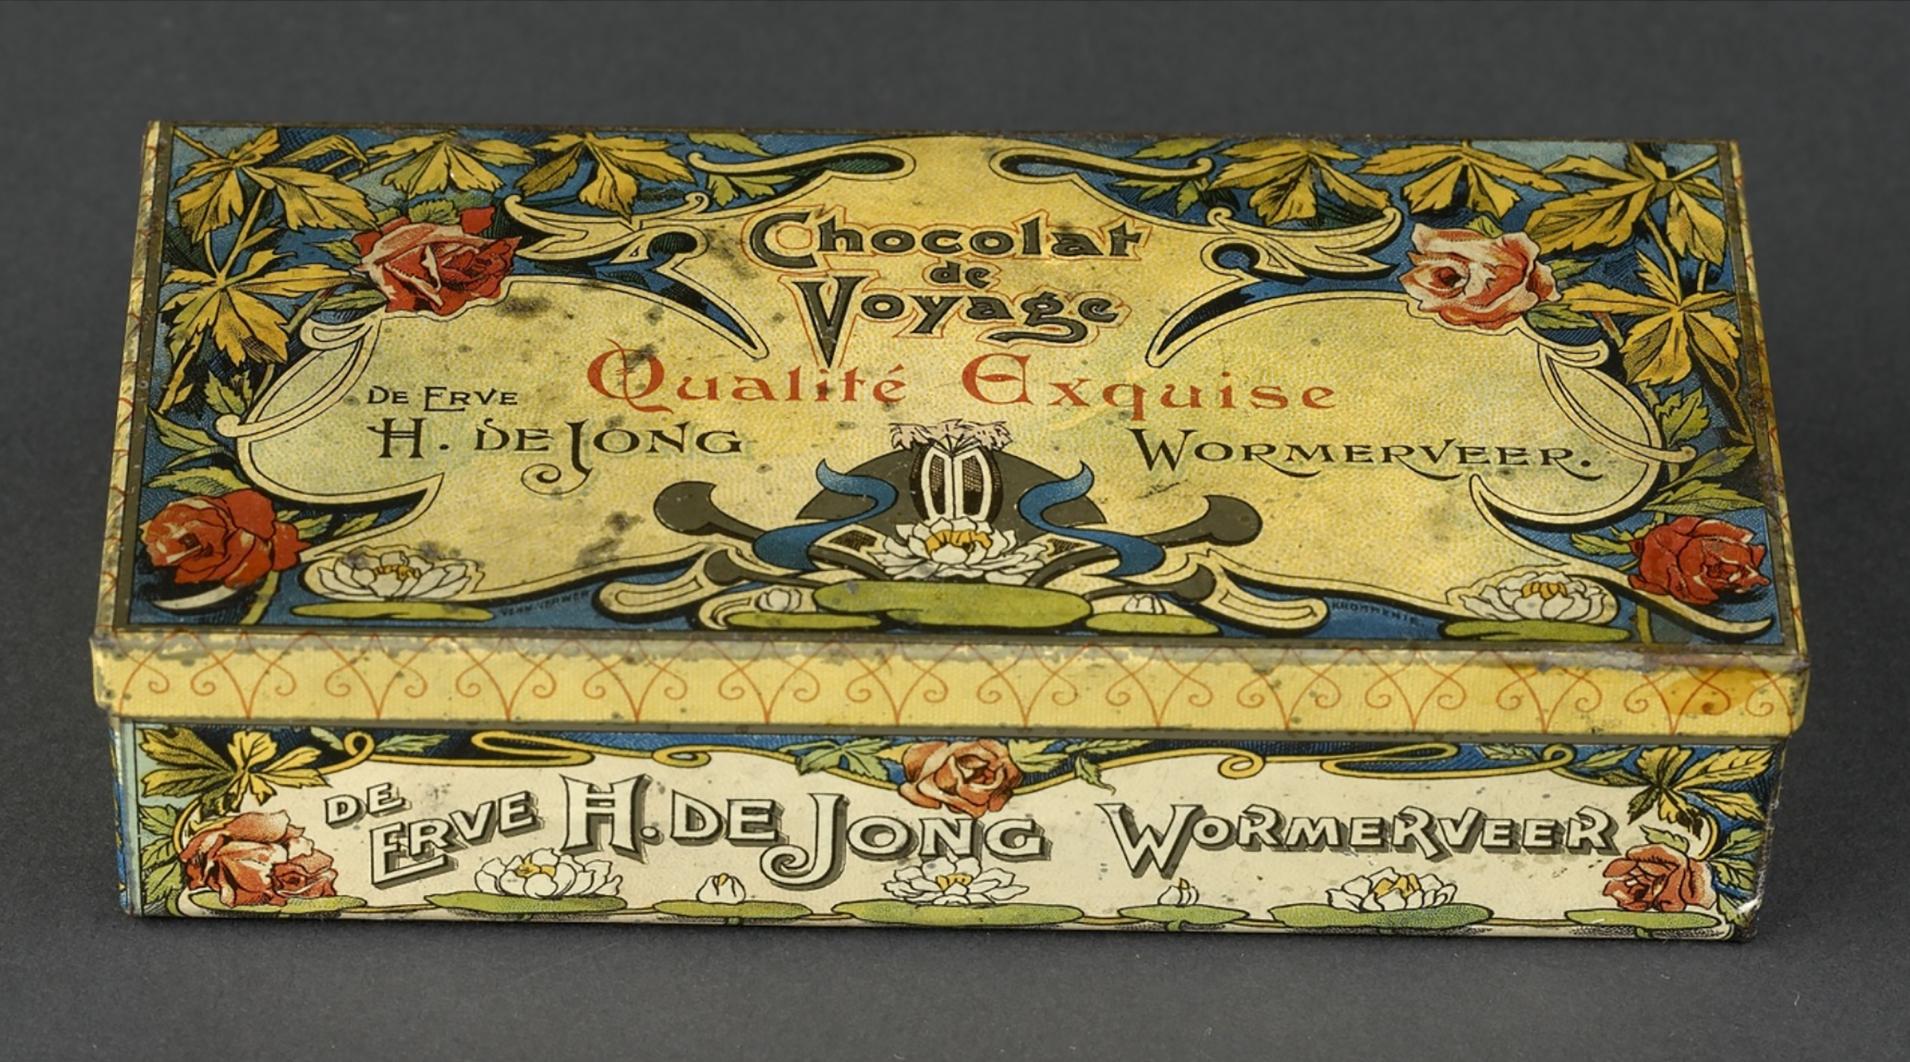 Chocolat
de
Voyage
Qualité Exquise
DE ERVE
H. DE JONG WORMERVEER.
VENN. VERWER KROMMENIE.
DE
ERVE H. DE JONG WORMERVEER